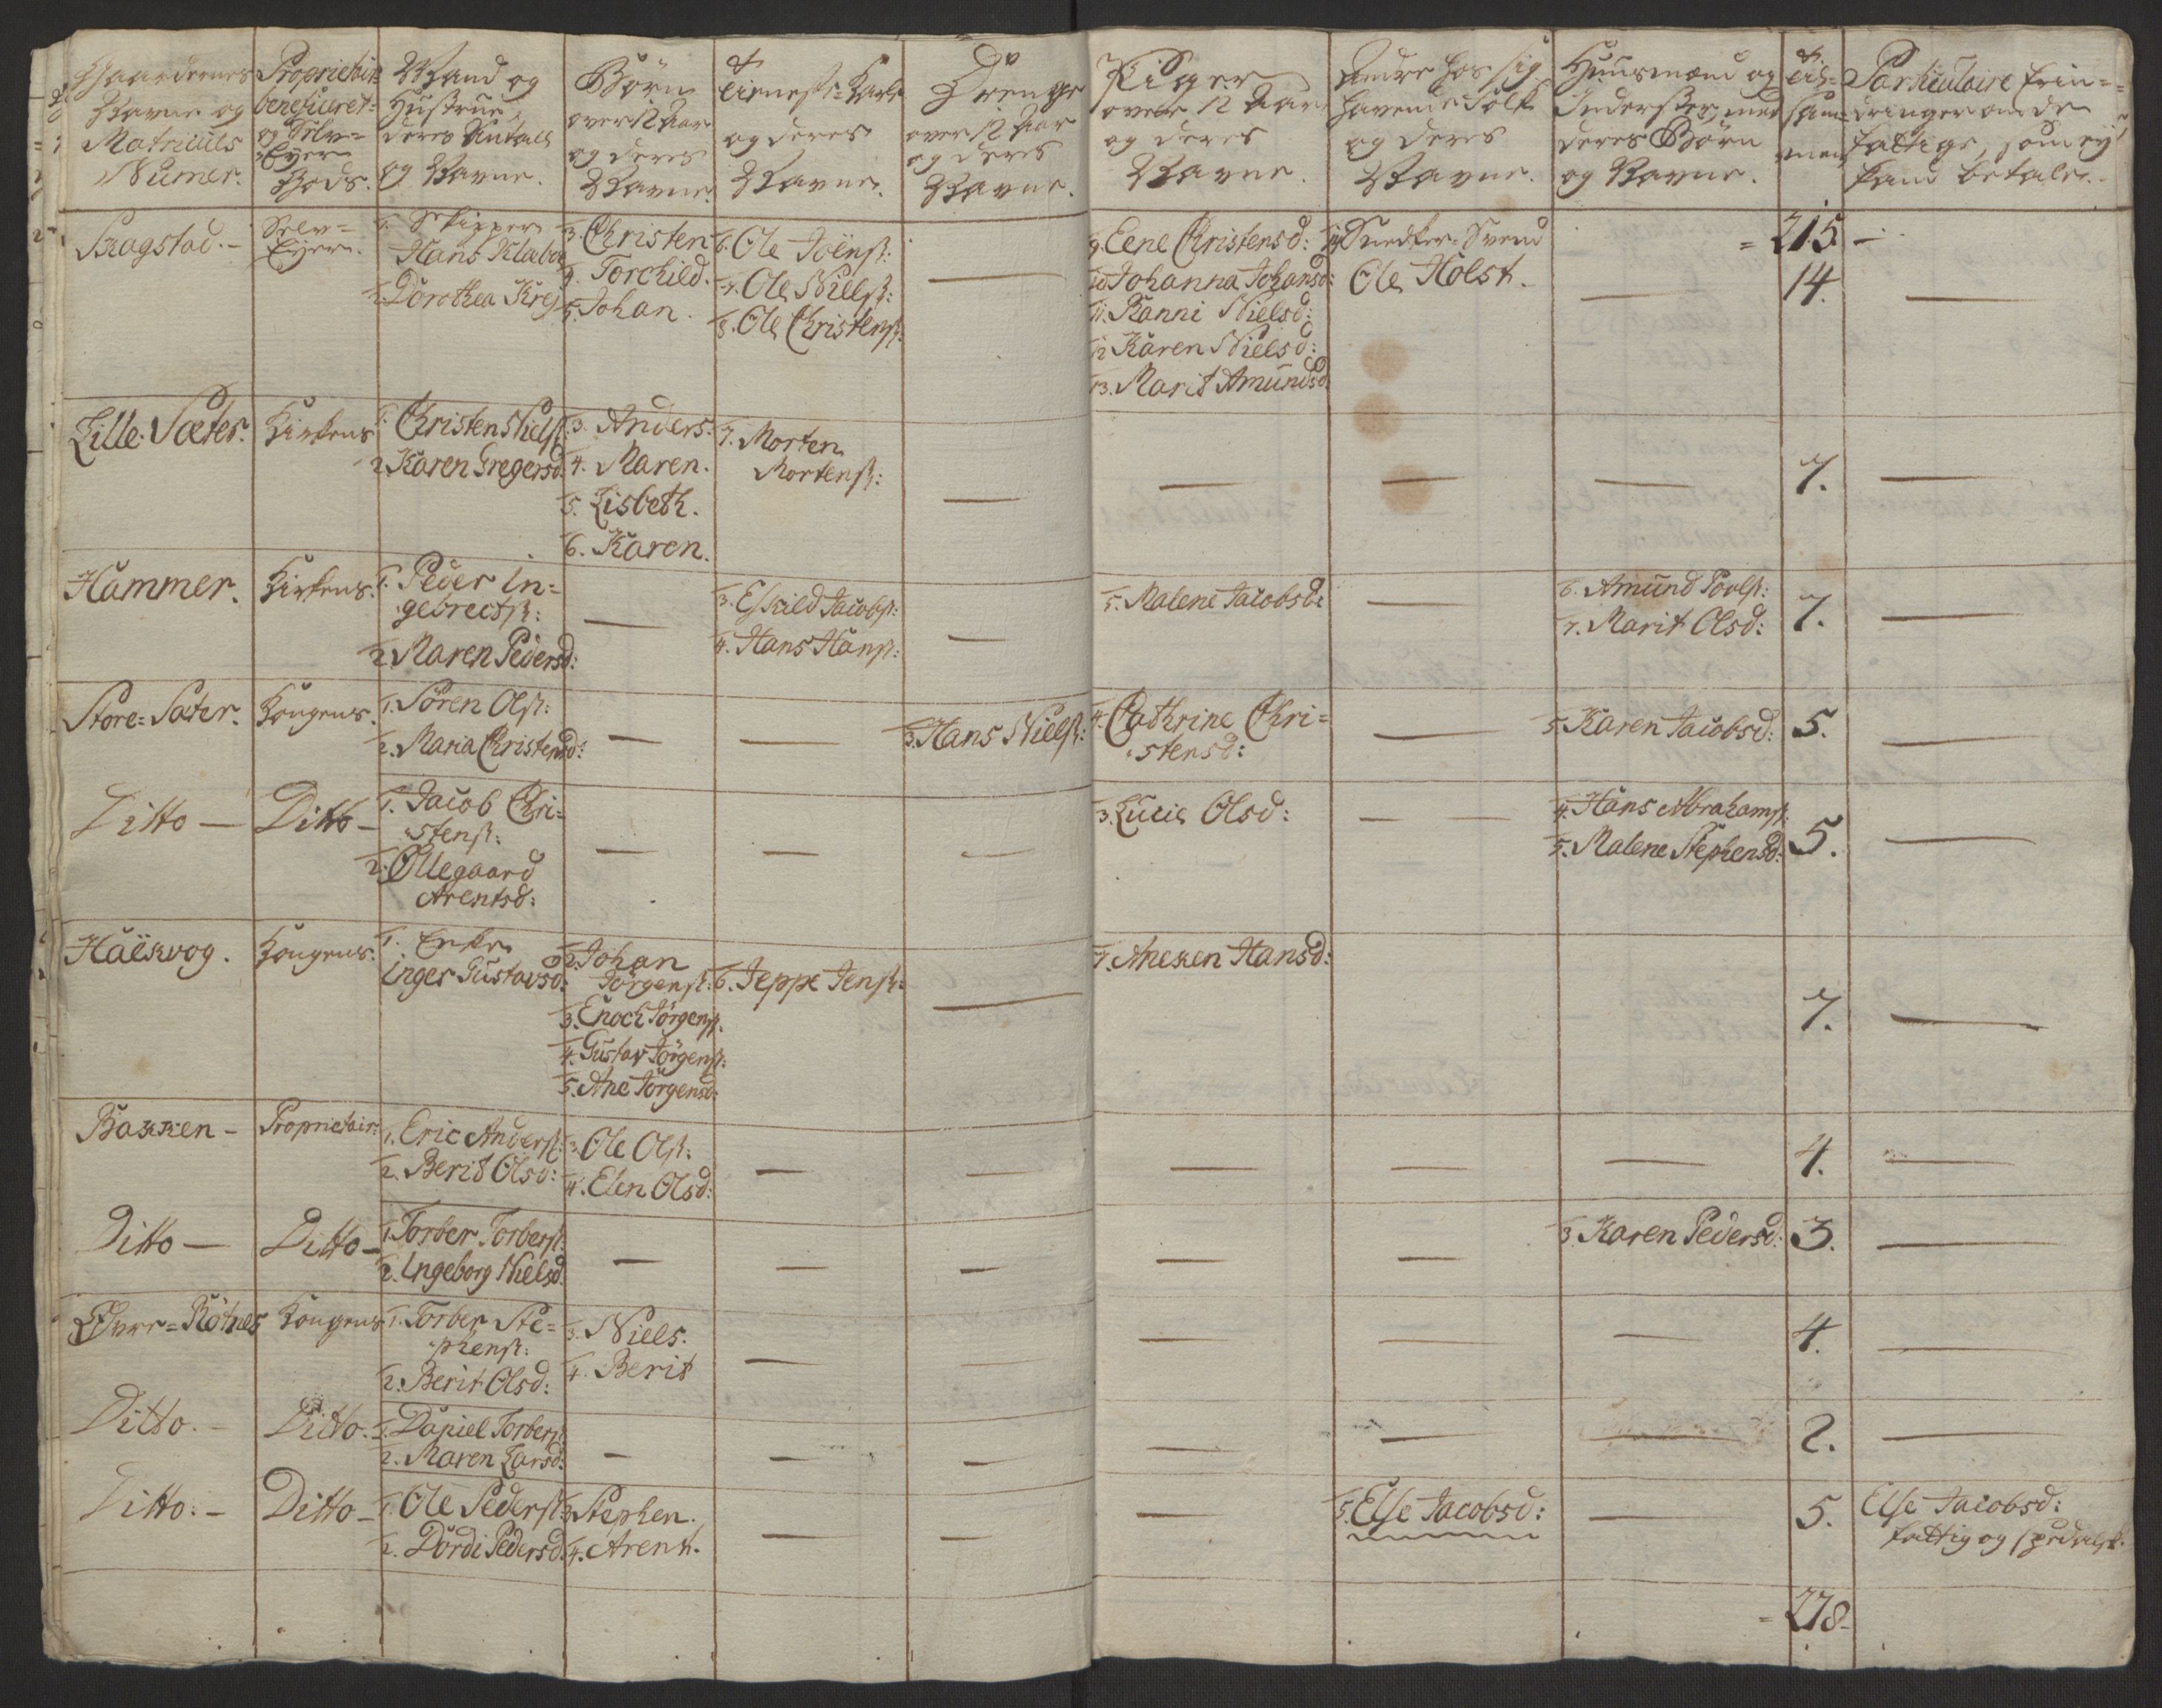 Gaardernes
Navne og
Matriculs
Numer.
Proprietair
beneficeret-
og Selv-
Eyer
Gods.
Mand og
Hustrue,
deres Antall
og Navne.
Børn
over 12 Aar
og deres
Navne.
Tieneste-Karle
og deres
Navne.
Drenge
over 12 Aar
og deres
Navne.
Piger
over 12 Aar
og deres
Navne.
Andre hos sig
havende Folk
og deres
Navne.
Huusmænd og
Inderster, med
deres Børn
og Navne.
Til-
sam-
men
Particulaire Erin-
dringer om de
fattige, som ey
kand betale.
= 215 -
Skagstad. -
Selv-
Eyer.
1. Skipper
Hans Klabo
2. Dorothea Krej
3. Christen
4. Torchild.
5. Johan.
6. Ole Joenß:
7. Ole Nielß:
8. Ole Christenß:
9. Eene Christensd:
10. Johanna Johansd:
11. Ranni Nielsd:
12. Karen Nielsd:
13. Marit Amundsd:
14. Snedker-Svend
Ole Holst.
14.
Lille Sæter.
Kirkens
1. Christen Nielß:
2. Karen Gregersd.
3. Anders.
4. Maren.
5. Lisbeth.
6. Karen.
7. Morten
Mortenß:
7.
Hammer.
Kirkens.
1. Peder In=
gebrectß:
2. Maren Pedersd:
3. Eskild Jacobß:
4. Hans Hanß:
5. Malene Jacobsd:
6. Amund Povlß:
7. Marit Olsd:
7.
Store=Sæter.
Kongens.
1. Søren Olß:
2. Maria Christensd:
3. Hans Nielß:
4. Cathrine Chri=
stensd:
5. Karen Jacobsd:
5.
Ditto -
Ditto -
1. Jacob Chri=
stenß:
2. Øllegaard
Arentsd:
3. Lucie Olsd:
4. Hans Abrahamß:
5. Malene Stephensd:
5.
Haekvog.
Kongens.
1. Enke
Inger Gustavsd:
2. Johan
Jørgenß:
3. Enoch Jørgenß.
4. Gustav Jørgenß:
5. Ane Jørgensd:
6. Jeppe Jenß:
7. Aneken Hansd:
7.
Bakken -
Proprietair:
1. Eric Anderß:
2. Berit Olsd:
3. Ole Olß:
4. Elen Olsd:
4.
Ditto -
Ditto -
1. Torber Torberß:
2. Ingeborg Nielsd.
3. Karen Pedersd:
3.
Øvre=Røtnes
Kongens
1. Torber Ste=
phenß:
2. Berit Olsd:
3. Niels.
4. Berit
4.
Ditto. -
Ditto.
1. Daniel Torberß
2. Maren Larsd:
2.
Ditto. -
Ditto -
1. Ole Pederß:
2. Dordi Pedersd.
3. Stephen.
4. Arent.
5. Else Jacobsd:
5.
Else Jacobsd:
fattig og spedalsk.
= 278-